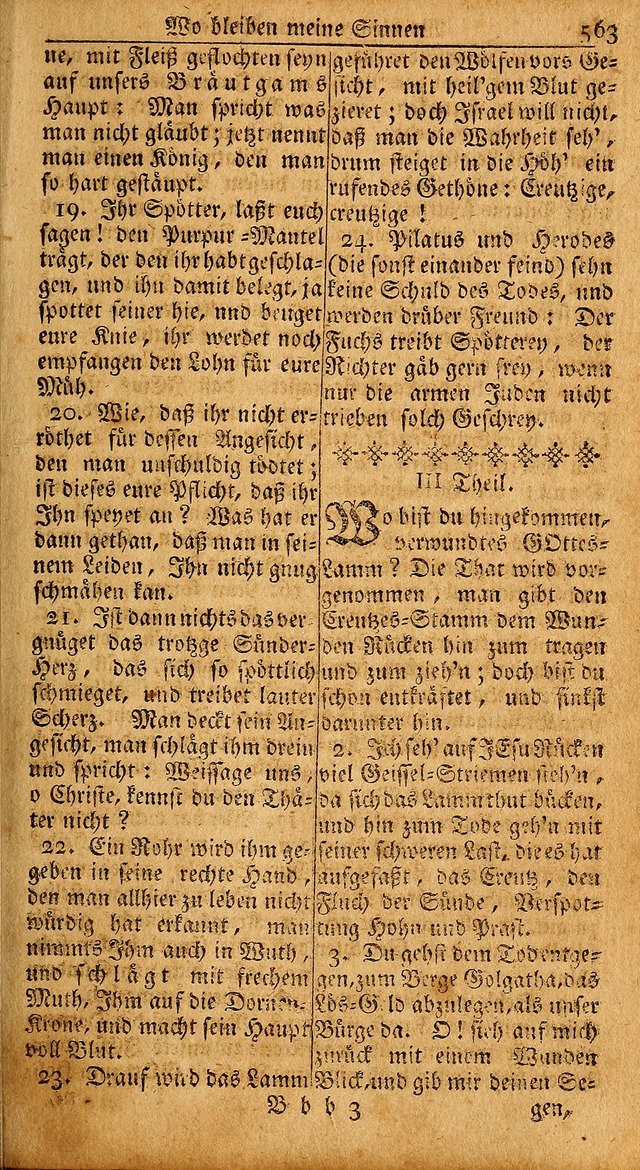 Wo bleiben meine Sinnen 563
ne, mit Fleiß geflochten seyn
auf unsers Bräutgams
Haupt: Man spricht was
man nicht gläubt; jetzt nennt
man einen König, den man
so hart gestäupt.
19. Ihr Spötter, laßt euch
sagen! den Purpur-Mantel
trägt, der den ihr habt geschla-
gen, und ihn damit belegt, ja
spottet seiner hie, und beuget
eure Knie, ihr werdet noch
empfangen den Lohn für eure
Müh.
20. Wie, daß ihr nicht er-
röthet für dessen Angesicht,
den man unschuldig tödtet;
ist dieses eure Pflicht, daß ihr
Ihn speyet an? Was hat er
dann gethan, daß man in sei-
nem Leiden, Ihn nicht gnug
schmähen kan.
21. Ist dann nichts das ver-
gnüget das trotzge Sünder-
Herz, das sich so spöttlich
schmieget, und treibet lauter
Scherz. Man deckt sein An-
gesicht, man schlägt ihm drein
und spricht: Weissage uns,
o Christe, kennst du den Thä-
ter nicht?
22. Ein Rohr wird ihm ge-
geben in seine rechte Hand,
den man allhier zu leben nicht
würdig hat erkannt, man
nimmts Ihm auch in Wuth,
und schlägt mit frechem
Muth, Ihm auf die Dornen-
Krone, und macht sein Haupt
voll Blut.
23. Drauf wird das Lamm
geführet den Wölfen vors Ge-
sicht, mit heil'gem Blut ge-
zieret; doch Israel will nicht,
daß man die Wahrheit seh',
drum steiget in die Höh' ein
rufendes Gethöne: Creutzige,
creutzige!
24. Pilatus und Herodes
(die sonst einander feind) sehn
keine Schuld des Todes, und
werden drüber Freund: Der
Fuchs treibt Spötterey, der
Richter gäb gern frey, wenn
nur die armen Juden nicht
trieben solch Geschrey.
III Theil.
Wo bist du hingekommen,
verwundtes GOttes-
Lamm? Die That wird vor-
genommen, man gibt den
Creutzes-Stamm dem Wun-
den Rücken hin zum tragen
und zum zieh'n; doch bist du
schon entkräftet, und sinkst
darunter hin.
2. Ich seh' auf JEsu Rücken
viel Geissel-Striemen steh'n,
da sich das Lamm thut bücken,
und hin zum Tode geh'n mit
seiner schweren Last, die es hat
aufgefaßt, das Creutz, den
Fluch der Sünde, Verspot-
tung Hohn und Prast.
3. Du gehst dem Tod entge-
gen, zum Berge Golgatha, das
Lös-Geld abzulegen, als unser
Bürge da. O! sieh auf mich
zurück mit einem Wunden
Blick, und gib mir deinen Se-
B b b 3 gen,